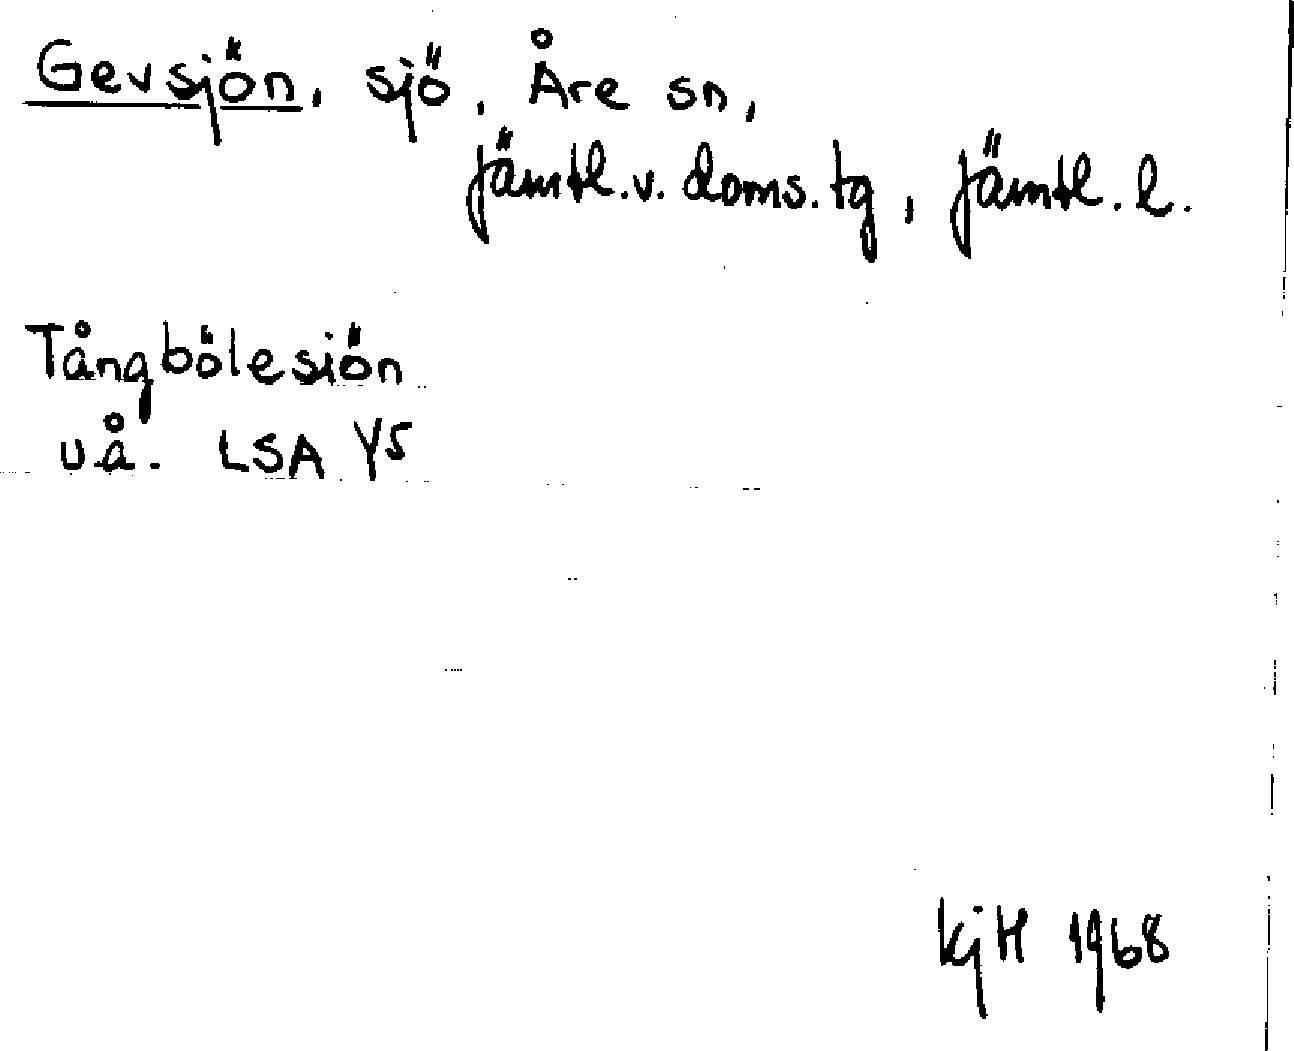 Gevsjön, sjö, Åre sn,
Jämtl. v. doms. tg, Jämtl. l.
Tångbölesjön
uå. LSA Y5
KjH 1968